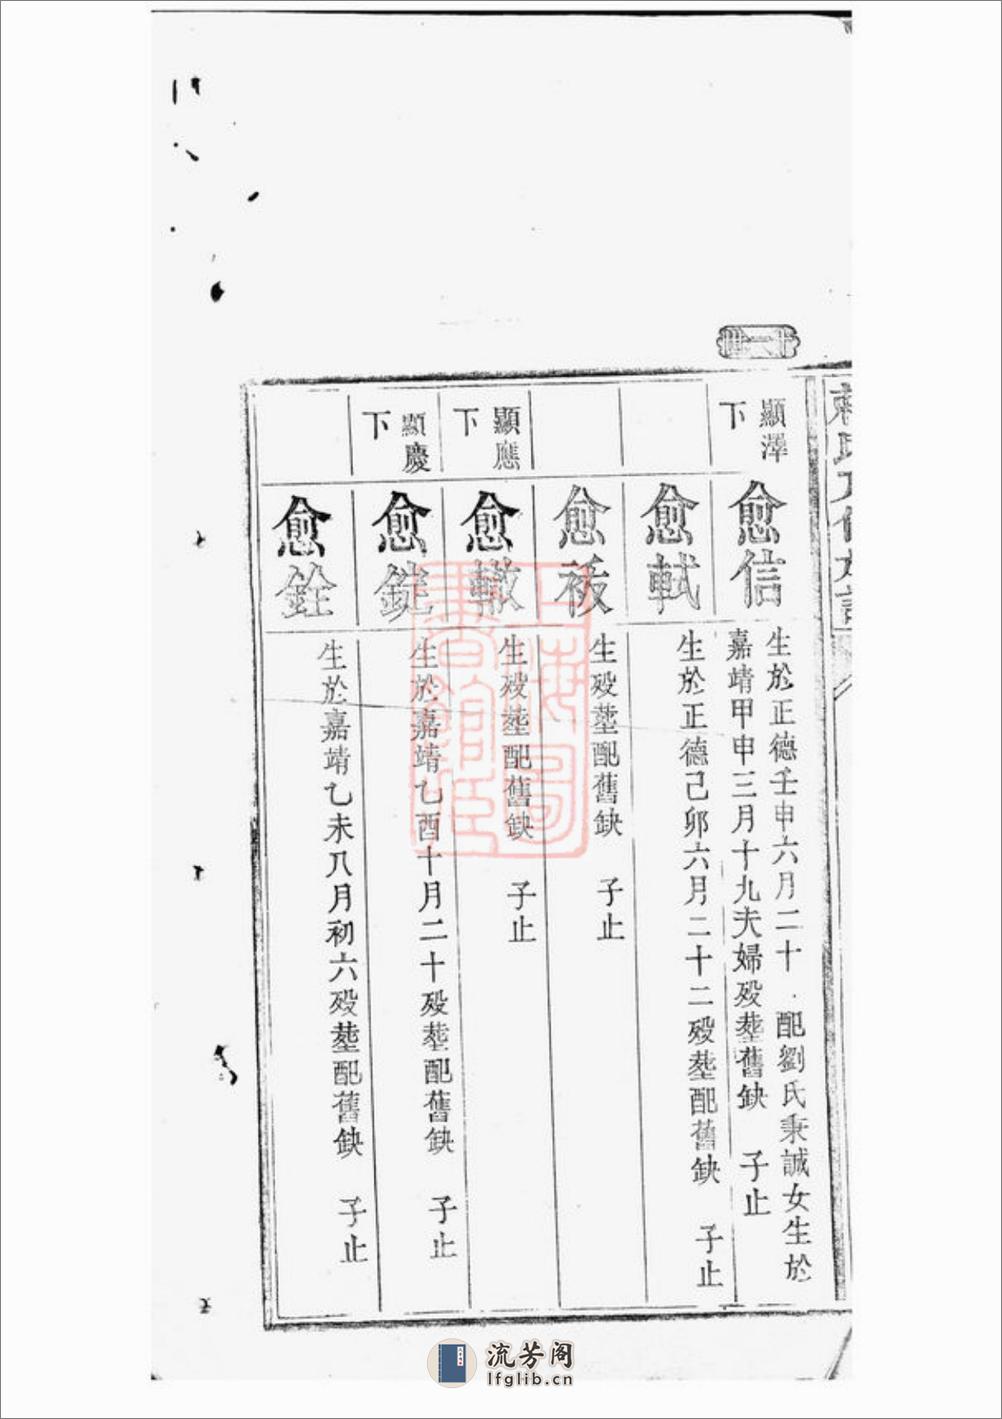 十一世
顯澤
下
愈信
生於正德壬申六月二十 配劉氏秉誠女生於
嘉靖甲申三月十九夫婦殁塟舊缺 子止
愈軾
生於正德己卯六月二十二殁塟配舊缺 子止
愈祓
生殁塟配舊缺 子止
顯應
下
愈轍
生殁塟配舊缺 子止
顯慶
下
愈銑
生於嘉靖乙酉十月二十殁塟配舊缺 子止
愈銓
生於嘉靖乙未八月初六殁塟配舊缺 子止
上海圖
書館藏
流芳阁
lfglib.cn